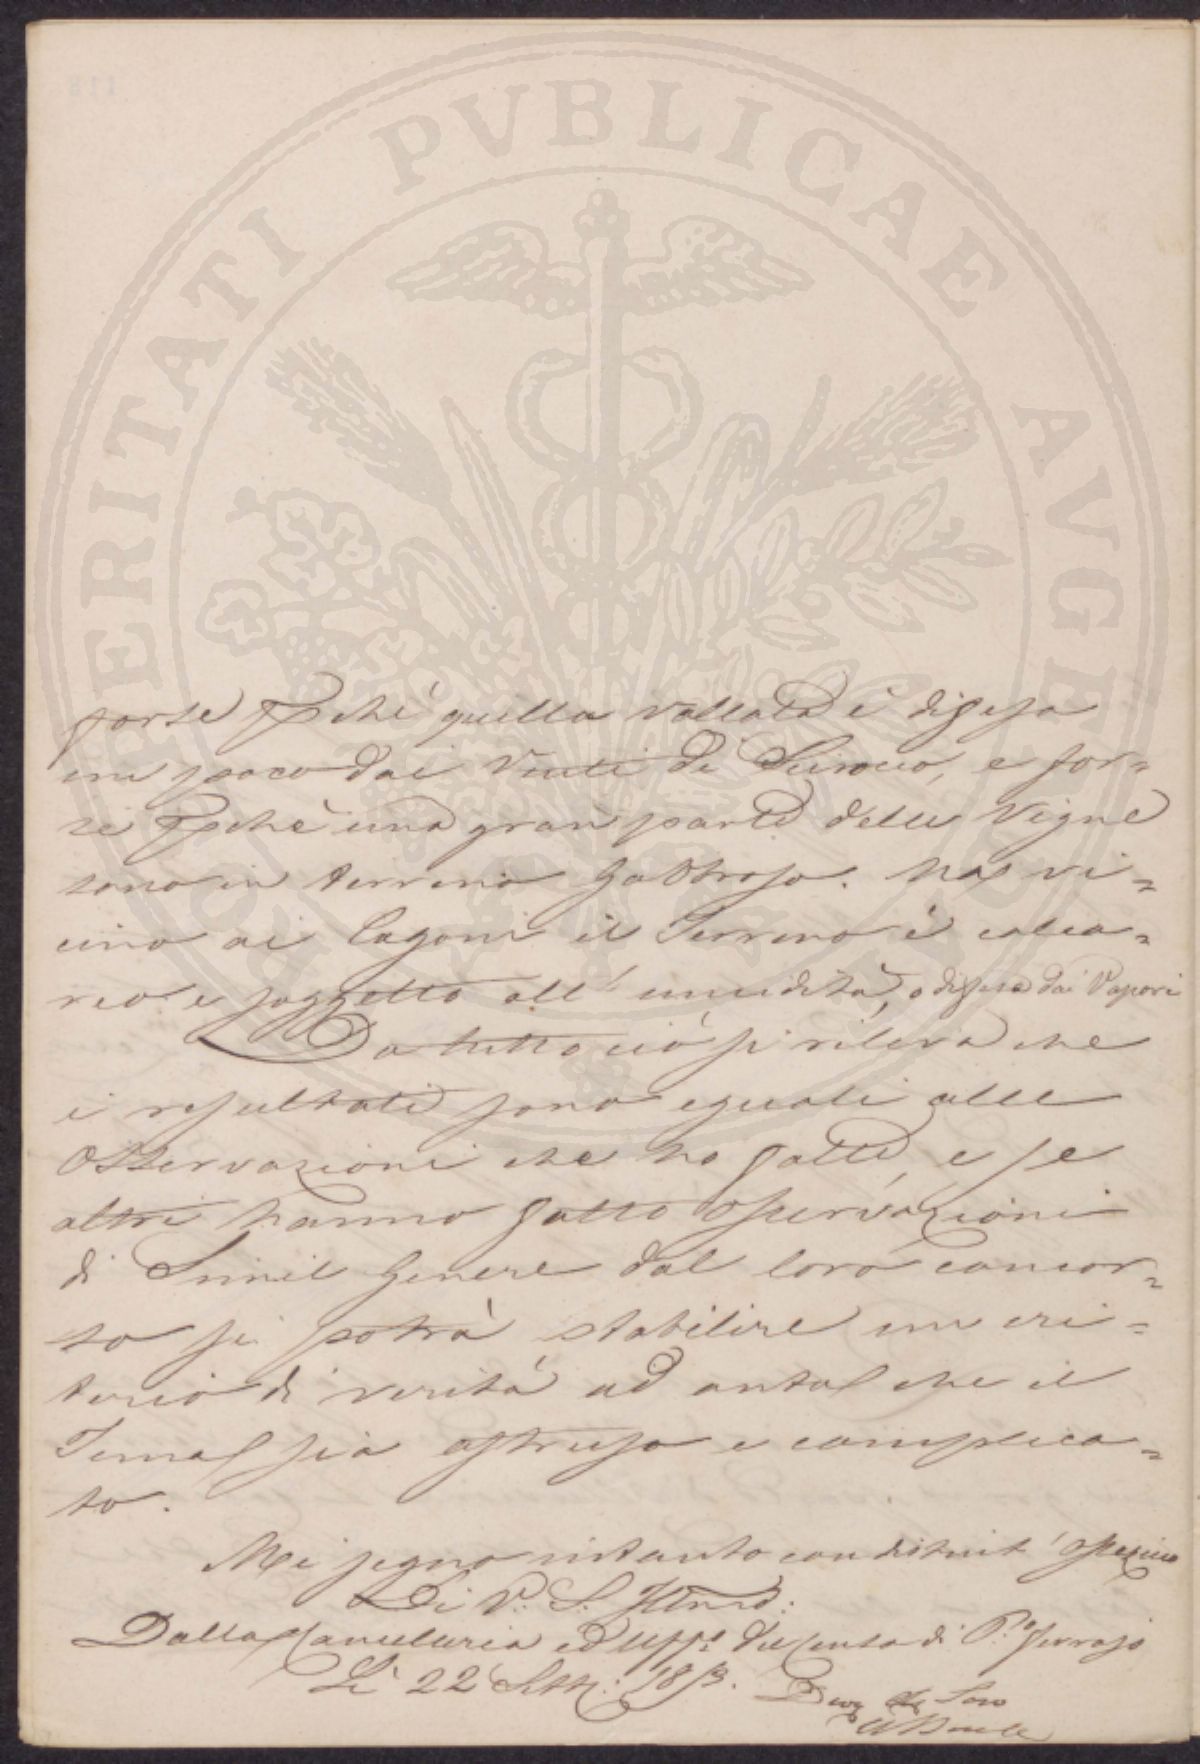 PROSPERITATI PVBLICAE AVGENDAE
forse pchè quella Vallata è difesa
un poco dai Venti di Scirocco, e for=
se pchè una gran parte delle Vigne
sono in terreno Galestroso. Ma vi=
cino ai Lagoni il Terreno è calca=
reo e soggetto all' umidità, o difeso dai Vapori
Da tutto ciò si rileva che
i resultati sono eguali alle
Osservazioni che ho fatte, e se
altri hanno fatto osservazioni
di Simil Genere dal loro concer=
to si potrà stabilire un cri=
terio di verità ad onta che il
Tema sia astruso e complica=
to.
Mi segno intanto con distint'
Di V. S. Illma:
Dalla Cancelleria ed Uffo del Censo di Po. Ferrajo
Li 22 Sette: 1853.